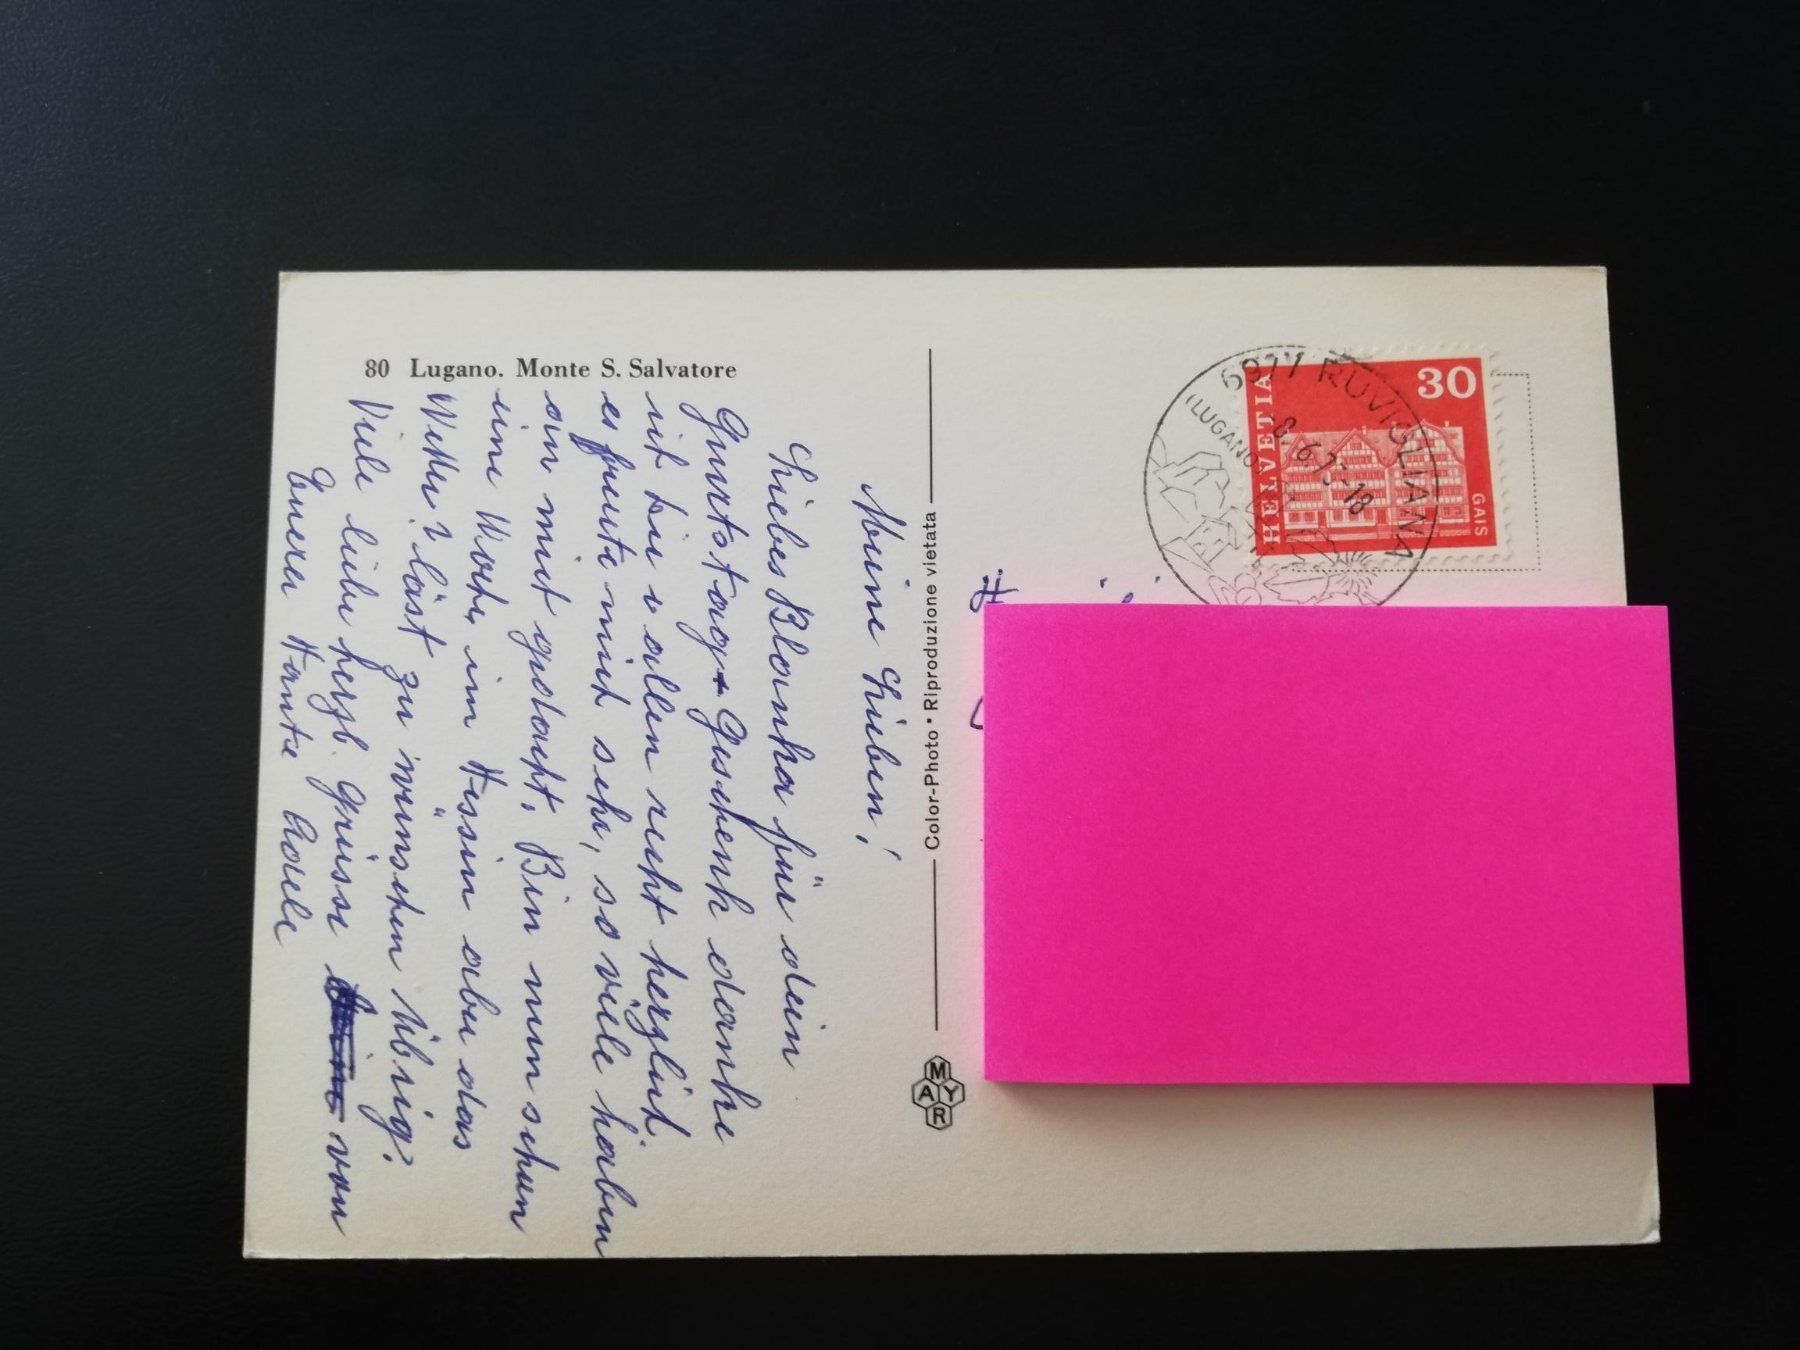 80 Lugano. Monte S. Salvatore
Meine Lieben!
Liebes Blanka für dein
Gurtstag + Geschenk danke
ich dir u allen recht herzlich
es freute mich sehr, so viele haben
an mich gedacht. Bin nun schon
eine Woche im Tessin aber das
Wetter läst zu wünschen übrig.
Viele liebe herzl. Grüsse von
Euera Tante Adele
Color-Photo • Riproduzione vietata
MAYR
6977 RUVIGLIANA
(LUGANO)
-8.6.73-18
HELVETIA
30
GAIS